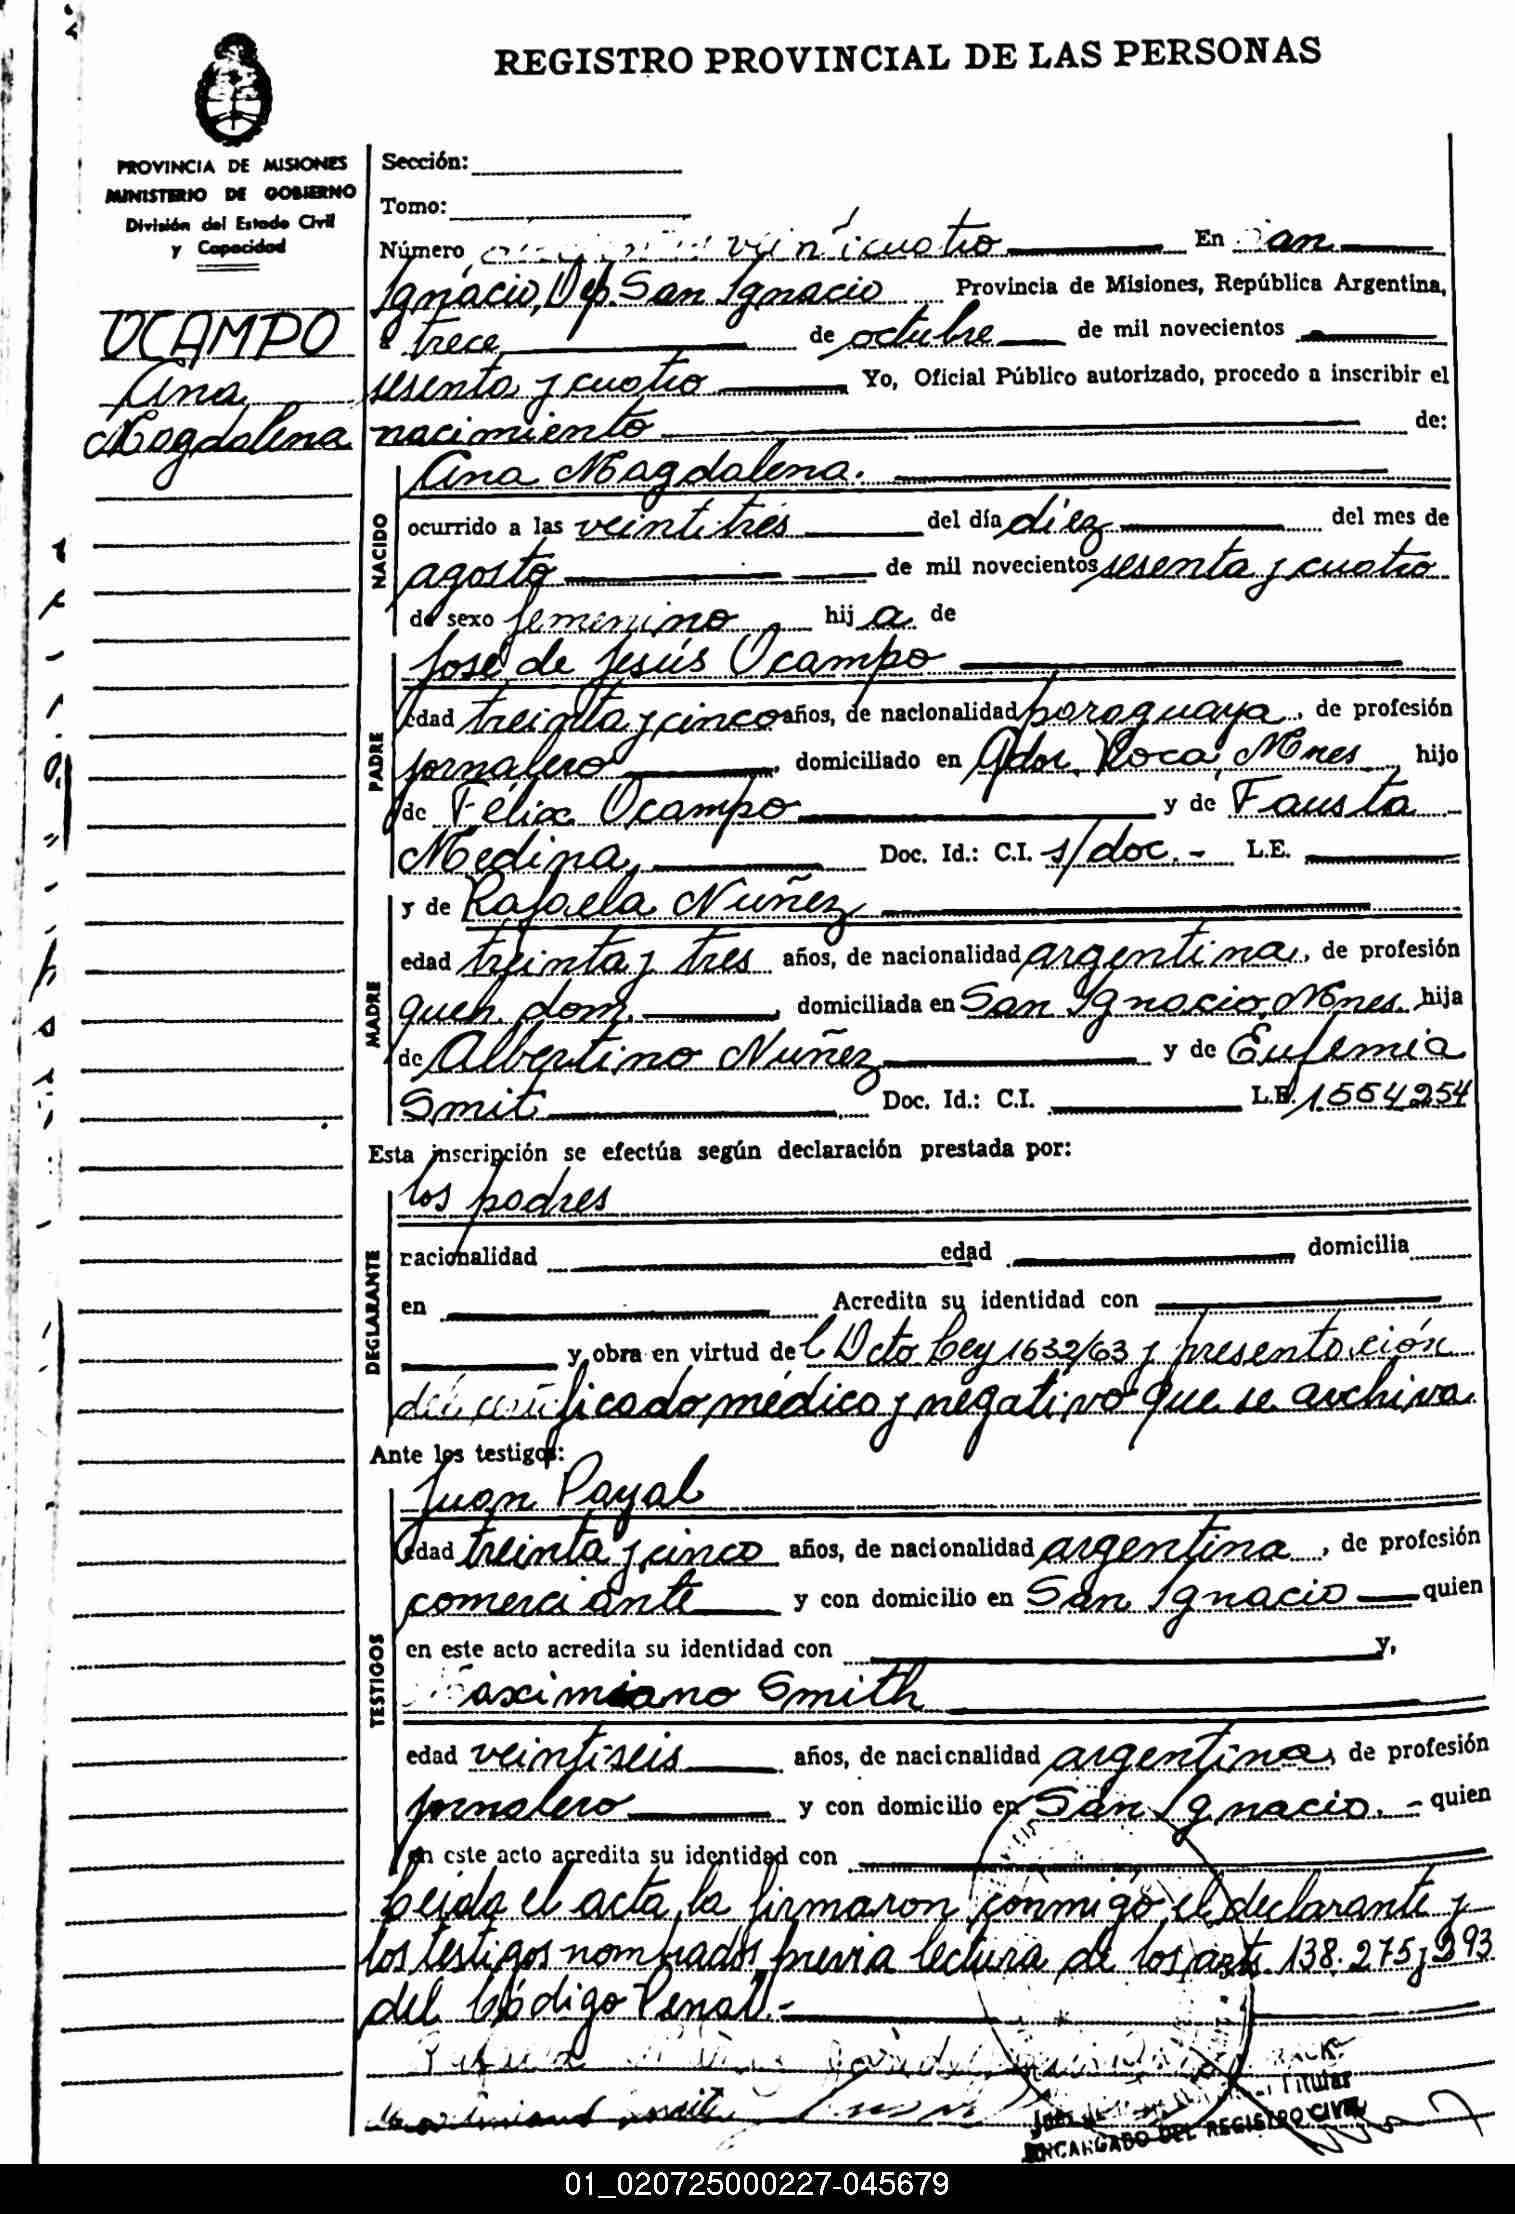 REGISTRO PROVINCIAL DE LAS PERSONAS
PROVINCIA DE MISIONES
MINISTERIO DE GOBIERNO
División del Estado Civil
y Capacidad
OCAMPO
Ana
Magdalena
Sección:
Tomo:
Número veinticuatro En San
Ignacio, Dep. San Ignacio Provincia de Misiones, República Argentina,
a trece de octubre de mil novecientos
sesenta y cuatro Yo, Oficial Público autorizado, procedo a inscribir el
nacimiento de:
NACIDO
Ana Magdalena.
ocurrido a las veintitrés del día diez del mes de
agosto de mil novecientos sesenta y cuatro
de sexo femenino hija de
PADRE
José de Jesús Ocampo
edad treinta y cinco años, de nacionalidad paraguaya, de profesión
jornalero, domiciliado en Gdor. Roca, Mnes. hijo
de Félix Ocampo y de Fausta
Medina, Doc. Id.: C.I. s/doc.- L.E.
MADRE
y de Rafaela Nuñez
edad treinta y tres años, de nacionalidad argentina, de profesión
queh. dom., domiciliada en San Ignacio, Mnes. hija
de Albertino Nuñez y de Eufemia
Smit Doc. Id.: C.I. L.E. 1.554.254
Esta inscripción se efectúa según declaración prestada por:
DECLARANTE
los padres
nacionalidad edad domicilia
en Acredita su identidad con
y obra en virtud del Dcto Ley 1632/63 y presentación
del certificado médico y negativo que se archiva
Ante los testigos:
TESTIGOS
Juan Payal
edad treinta y cinco años, de nacionalidad argentina, de profesión
comerciante y con domicilio en San Ignacio quien
en este acto acredita su identidad con y,
Maximiano Smith
edad veintiseis años, de nacionalidad argentina, de profesión
jornalero y con domicilio en San Ignacio. - quien
en este acto acredita su identidad con
Leída el acta, la firmaron conmigo el declarante y
los testigos nombrados previa lectura de los arts. 138. 275 y 293
del Código Penal.-
Titular
ENCARGADO DEL REGISTRO CIVIL
01_020725000227-045679